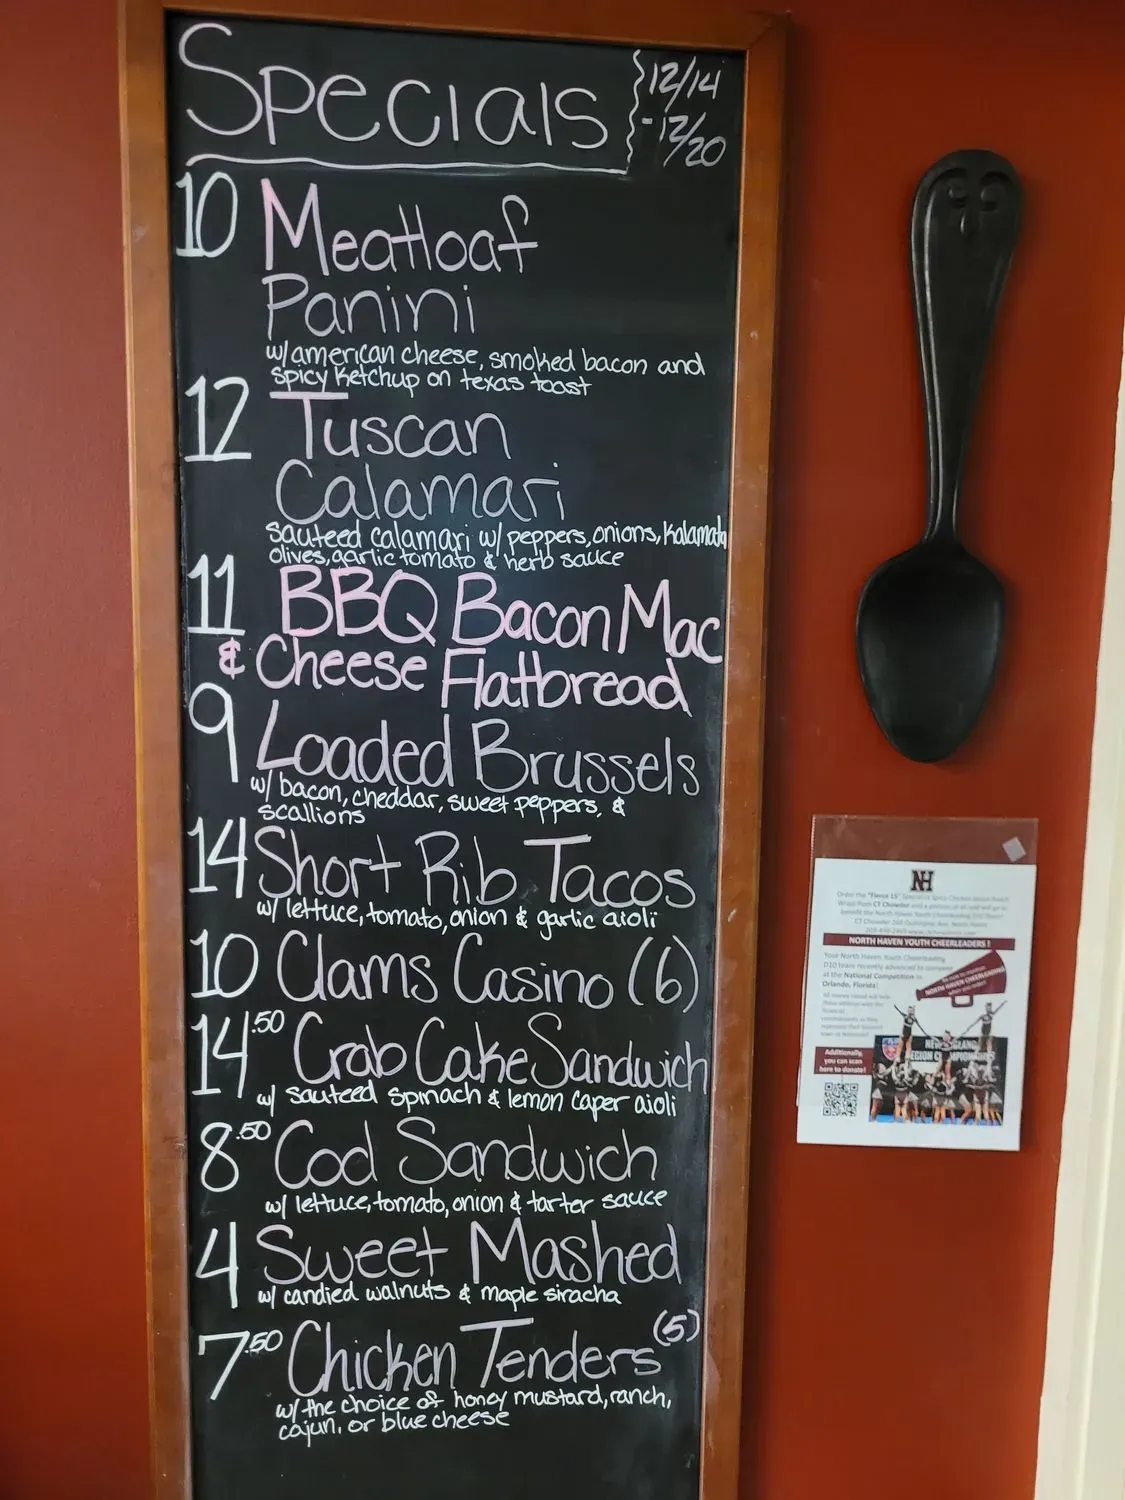 Specials
12/14
- 12/20
10 Meatloaf
Panini
w/ american cheese, smoked bacon and
spicy Ketchup on texas toast
12 Tuscan
Calamari
sauteed calamari w/ peppers, onions, Kalamata
olives, garlic tomato & herb sauce
11 BBQ Bacon Mac
& Cheese Flatbread
9 Loaded Brussels
w/ bacon, cheddar, sweet peppers, &
scallions
14 Short Rib Tacos
w/ lettuce, tomato, onion & garlic aioli
10 Clams Casino (6)
14.50 Crab Cake Sandwich
w/ sauteed spinach & lemon caper aioli
8.50 Cod Sandwich
w/ lettuce, tomato, onion & tarter sauce
4 Sweet Mashed
w/ candied walnuts & maple siracha
7.50 Chicken Tenders (5)
w/ the choice of honey mustard, ranch,
cajun, or blue cheese
NH
NORTH HAVEN YOUTH CHEERLEADERS !
Your North Haven Youth Cheerleading
D10 team recently advanced to compete
at the National Competition in
Orlando, Florida!
NORTH HAVEN CHEERLEADING
Additionally,
you can scan
here to donate!
NEW ENGLAND
REGION CHAMPIONSHIPS